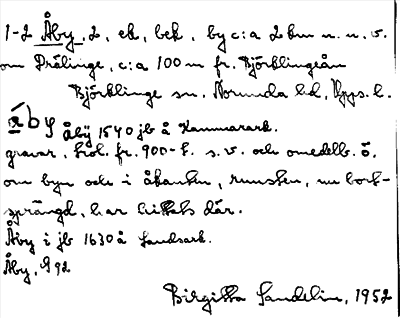 1-2 Åby, 2, ek, bek, by c:a 2 km n. n. v.
om Drälinge, c:a 100 m fr. Björklingeån
Björklinge sn, Norunda hd, Upps. l.
åby Åby 1540 jb å Kammarark.
gravar, trol. fr. 900-t. s. v. och omedelb. ö.
om byn och i åkanten, runsten, nu bort-
sprängd, har hittats där.
Åby i jb 1630 å Landsark.
Åby, 92
Birgitta Sandelin, 1952